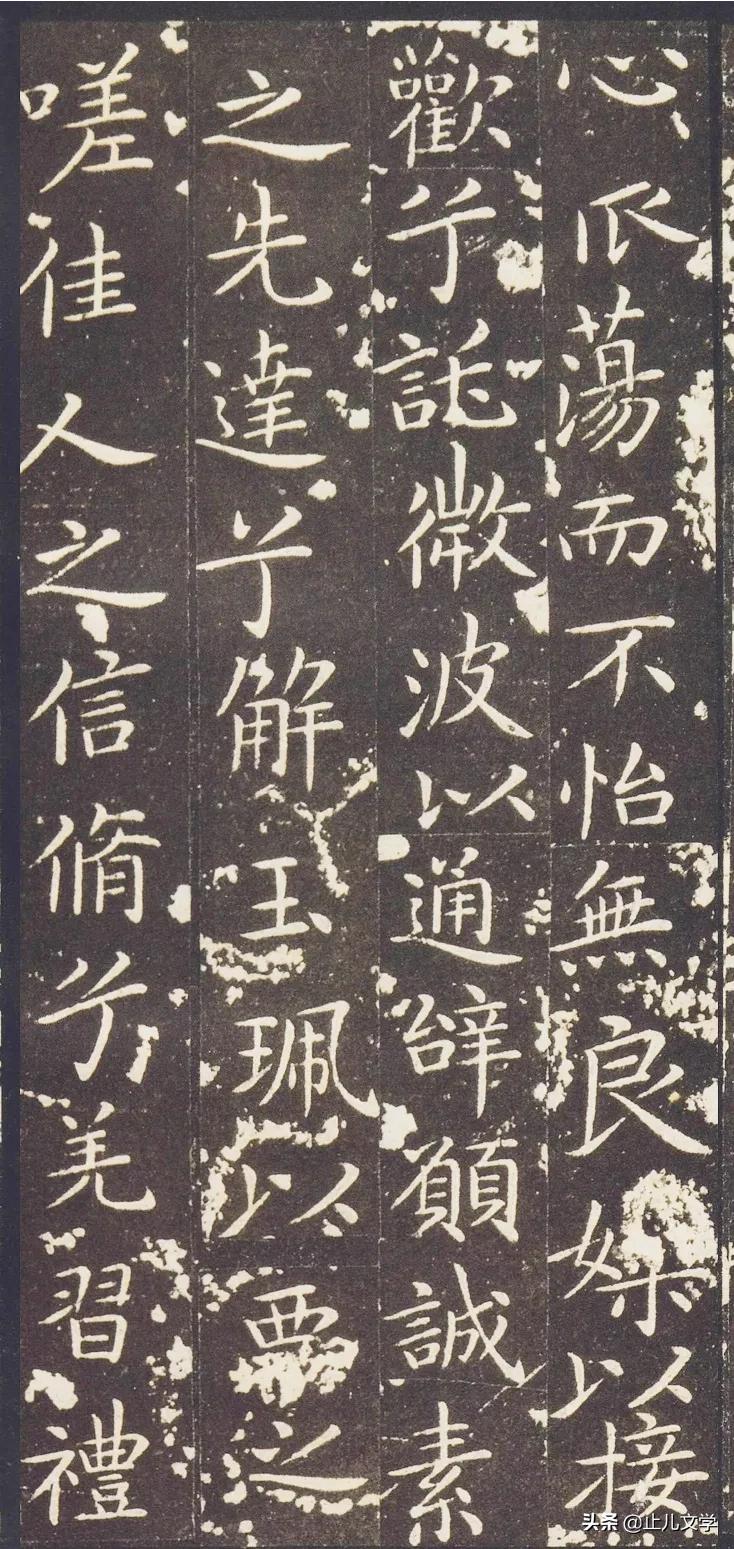 心蕩而不怡無良媒以接
歡兮託微波以通辝願誠素
之先達兮解玉珮以要之
嗟佳人之信脩兮羌習禮
头条 @止儿文学